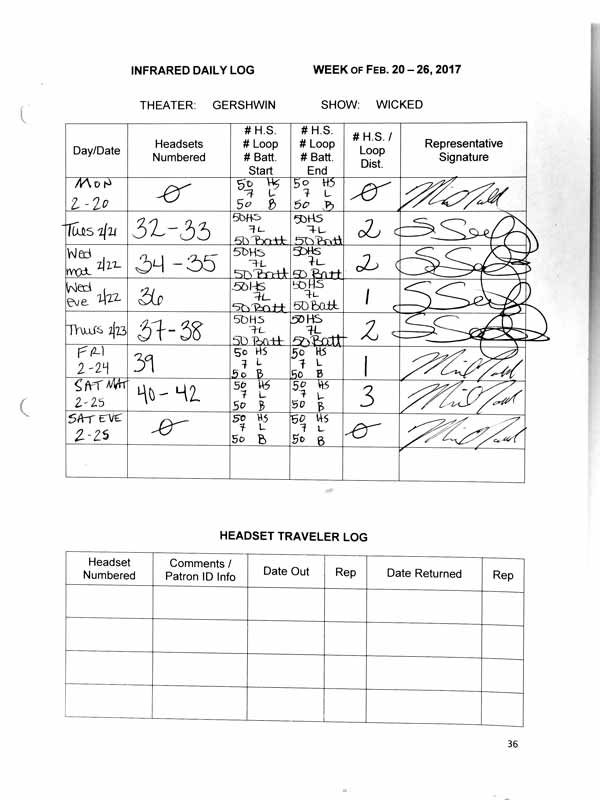 INFRARED DAILY LOG WEEK OF FEB. 20 – 26, 2017
THEATER: GERSHWIN SHOW: WICKED
Day/Date Headsets Numbered # H.S. # Loop # Batt. Start # H.S. # Loop # Batt. End # H.S. / Loop Dist. Representative Signature
MON 2-20 Ø 50 HS 7 L 50 B 50 HS 7 L 50 B Ø
Tues 2/21 32-33 50HS 7L 50 Batt 50HS 7L 50 Batt 2
Wed mat 2/22 34-35 50HS 7L 50 Batt 50HS 7L 50 Batt 2
Wed eve 2/22 36 50HS 7L 50 Batt 50HS 7L 50 Batt 1
Thurs 2/23 37-38 50HS 7L 50 Batt 50HS 7L 50 Batt 2
FRI 2-24 39 50 HS 7 L 50 B 50 HS 7 L 50 B 1
SAT MAT 2-25 40-42 50 HS 7 L 50 B 50 HS 7 L 50 B 3
SAT EVE 2-25 Ø 50 HS 7 L 50 B 50 HS 7 L 50 B Ø
HEADSET TRAVELER LOG
Headset Numbered Comments / Patron ID Info Date Out Rep Date Returned Rep
36